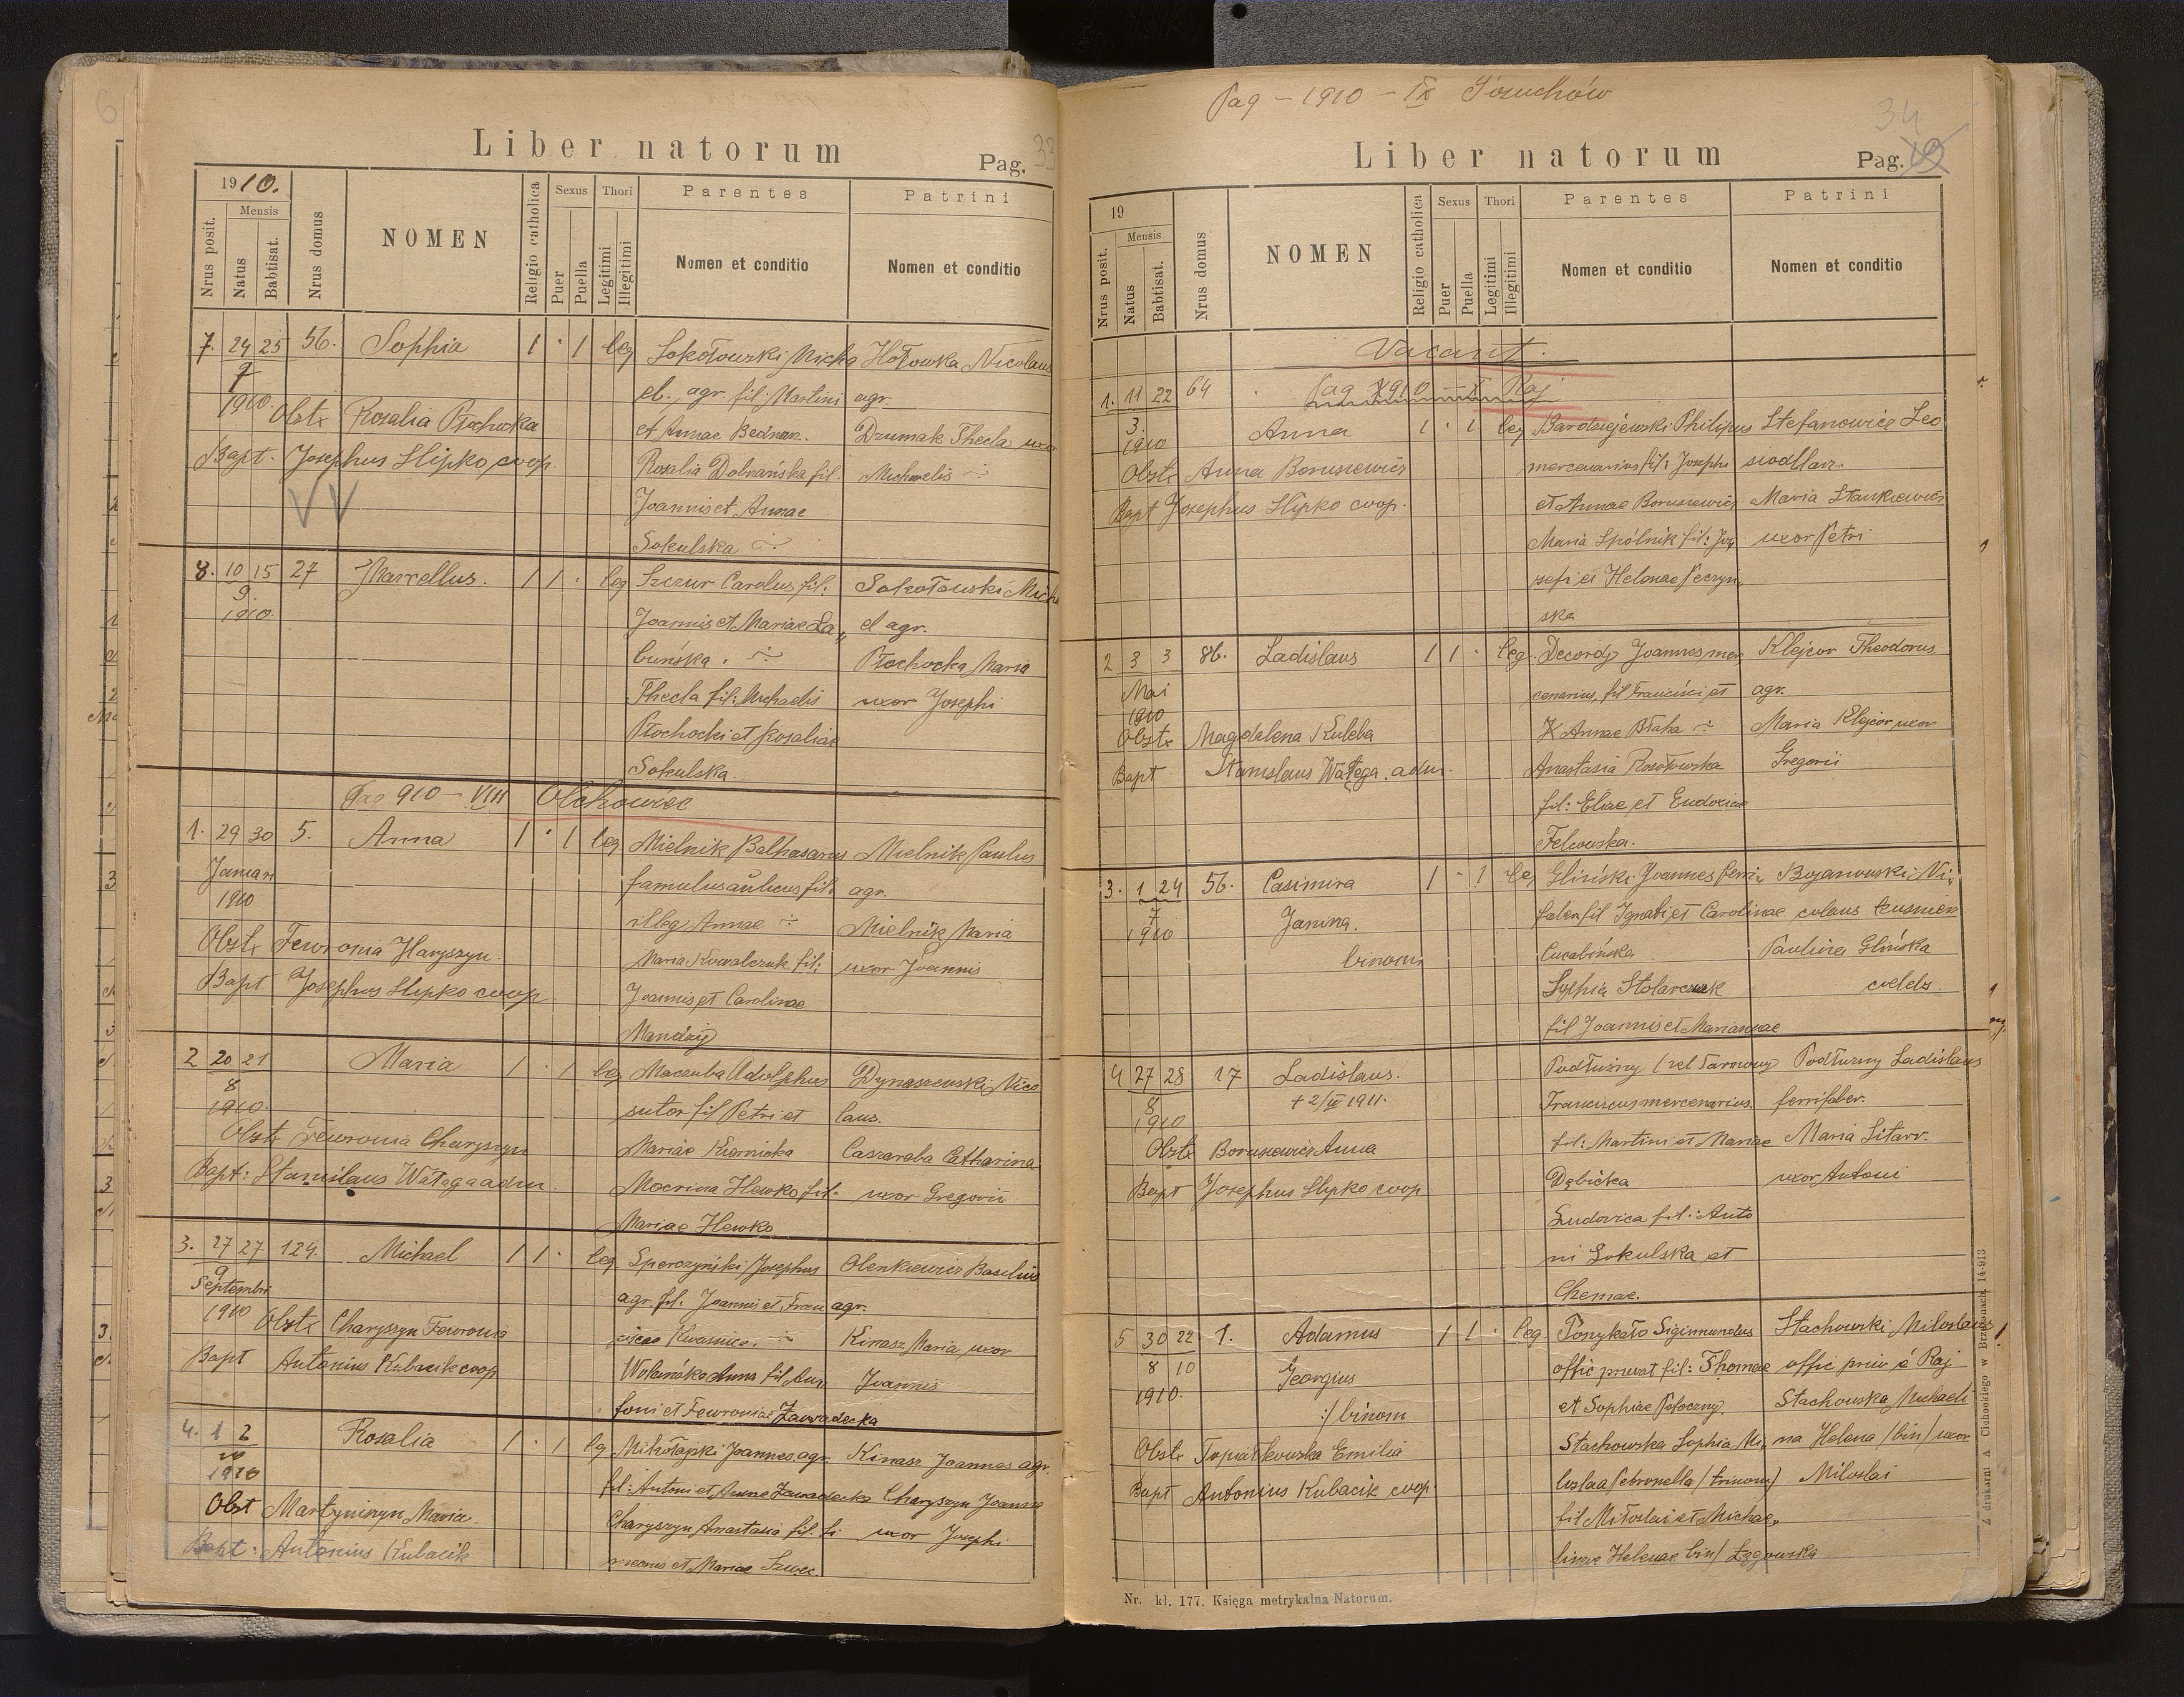 Liber natorum
Pag. 33
1910.
Nrus posit.
Mensis
Natus
Babtisat.
Nrus domus
NOMEN
Religio catholica
Sexus
Puer
Puella
Thori
Legitimi
Illegitimi
Parentes
Nomen et conditio
Patrini
Nomen et conditio
7. 24 25 56. Sophia 1 · 1 leg Sokołowski Micha Hołowka Nicolaus
9 el. agr. fil. Martini agr.
1910. Obstx Rosalia Płochocka et Annae Bednarz. Dzumak Thecla uxor
Bapt. Josephus Slipko, coop. Rosalia Dobrańska fil. Michaelis
Joannis et Annae
Sokulska
8. 10 15 27 Marcellus. 1 1 · leg Szczur Carolus fil: Sokołowski Micha
9. Joannis et Mariae La„ el agr.
1910. buńska. Płochocka Maria
Thecla fil: Michaelis uxor Josephi
Płochocki et Rosaliae
Sokulska.
Pag 910 – VIII Olchowiec
1. 29 30 5. Anna 1 · 1 leg. Mielnik Balthasarus Mielnik Paulus
Januari famulus aulicus fil. agr.
1910 illeg Annae Mielnik Maria
Obstx Fewronia Haryszyn. Maria Kowalczuk fil: uxor Joannis
Bapt Josephus Slipko coop Joannis et Carolinae
Mandzij
2 20 21 Maria 1 · 1 leg Maczuba Adolphus Dynaszewski Nico
8 sutor fil Petri et laus.
1910. Mariae Kiernicka Caszaraba Catharina
Obstx Fewronia Charyszyn Macrina Hewko fil. uxor Gregorii
Bapt: Stanislaus Wałęga adm. Mariae Hewko
3. 27 27 124. Michael 1 1 · leg Sperczyński Josephus Olenkiewicz Basilius
9 agr. fil. Joannis et Fran agr.
Septembri ciscae Kwasnica. Kinasz Maria uxor
1910 Obstx Charyszyn Fewronia Wolańska Anna fil An„ Joannis
Bapt Antonius Kubacik coop toni et Fewroniae Zawadecka
4. 1 2 Rosalia 1 · 1 leg Mikołajski Joannes agr. Kinasz Joannes agr.
10 fil: Antoni et Annae Zawadecka Charyszyn Joanna
1910 Charyszyn Anastasia fil. Si uxor Josephi
Obst Martyniszyn Maria. meonis et Mariae Szwec.
Bapt: Antonius Kubacik
Pag – 1910 – IX
34
Liber natorum
Pag. 19
19
Nrus posit.
Mensis
Natus
Babtisat.
Nrus domus
NOMEN
Religio catholica
Sexus
Puer
Puella
Thori
Legitimi
Illegitimi
Parentes
Nomen et conditio
Patrini
Nomen et conditio
Vacant.
Pag 1910 – X Raj
1. 11 22 64 Anna 1 · 1 leg Bardziejewski Philipus Stefanowicz Leo
3. mercenarius fil: Josephi siodlarz.
1910 et Annae Borusiewicz Maria Stankiewicz
Obstx Anna Borusiewicz Maria Spólnik fil: Jos„ uxor Petri
Bapt Josephus Slipko coop. sefi et Helenae Peczyn„
ska
2 3 3 86. Ladislaus 1 1 · leg. Decordy Joannes, mer„ Klejcor Theodorus
Mai cenarius, fil Francisci et agr.
1910 Annae Płaha Maria Klejcor, uxor
Obstx Magdalena Kuleba Anastasia Rosołowska Gregorii
Bapt Stanislaus Wałęga adm. fil: Eliae et Eudoxiae
Felcowska.
3. 1 24 56. Casimira 1 · 1 leg Gliński Joannes ferri„ Bojanowski Ni„
7 Janina. faber fil Ignati et Carolinae colaus
1910 binom Paulina Glińska
Sophia Stolarczuk coelebs
fil Joannis et Mariannae
4 27 28 17 Ladislaus. Podłużny (vel Tarnowy) Podłużny Ladislaus
8 + 2/IV 1911. Franciscus mercenarius. ferrifaber.
1910 fil: Martini et Mariae Maria Sitarz.
Obstx Borusiewicz Anna Dębicka uxor Antoni
Bapt Josephus Slipko coop Ludovica fil: Anto
ni Sokulska et
Chemae.
5 30 22 1. Adamus 1 1 · leg. Ponykało Sigismundus Stachowski Miloslaus
8 10 Georgius offic privat fil: Thomae offic priv é Raj
1910. :/ binom et Sophiae Potoczny. Stachowska Michaeli
Obstx Emilia Stachowska Sophia Mi„ na Helena /bin/ uxor
Bapt Antonius Kubacik coop loslaa Petronella /trinom/ Miloslai
fil Miłoslai et Michae„
linae Helenae bin/ Łęgowska
Nr. kł. 177. Księga metrykalna Natorum.
Z drukarni A Cichockiego w Brzeżanach. 14-913